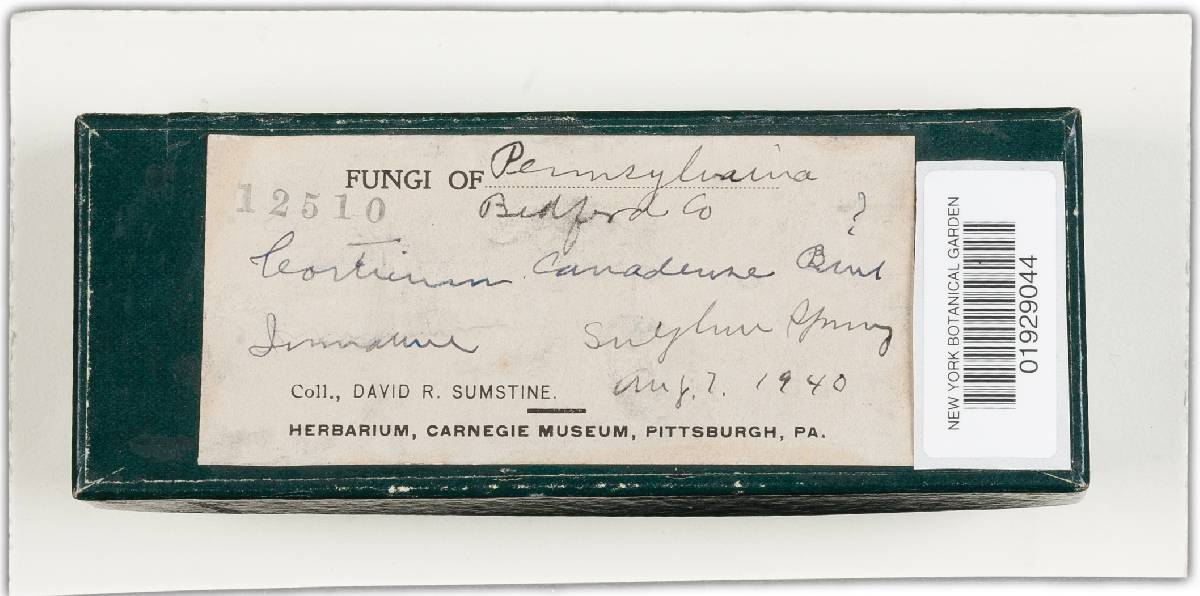 FUNGI OF Pennsylvania
12510 Bedford Co ?
Corticium Canadense Burt
Immature Sulphur Spring
Coll., DAVID R. SUMSTINE. Aug. 7. 1940
HERBARIUM, CARNEGIE MUSEUM, PITTSBURGH, PA.
NEW YORK BOTANICAL GARDEN
01929044